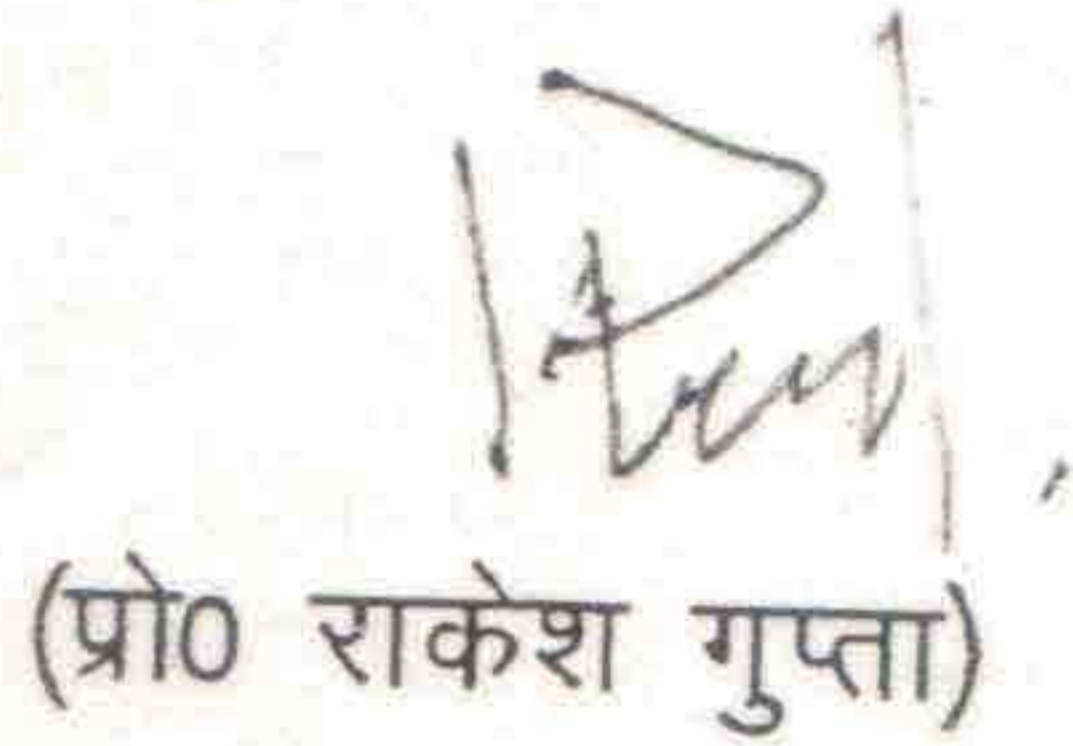 (प्रो0 राकेश गुप्ता)